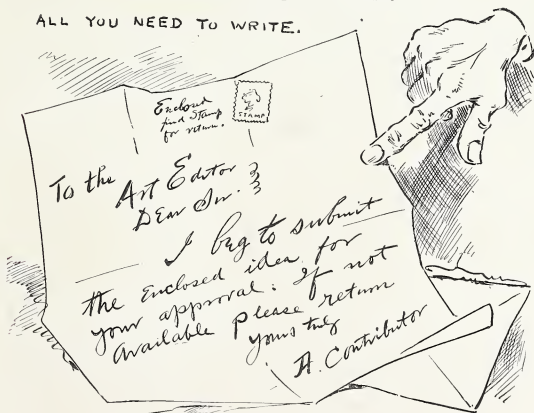 ALL YOU NEED TO WRITE.
Enclosed
find stamp
for return.
STAMP
To the Art Editor
Dear Sir:
I beg to submit
the Enclosed idea for
your approval. If not
available Please return
yours truly
A. Contributor